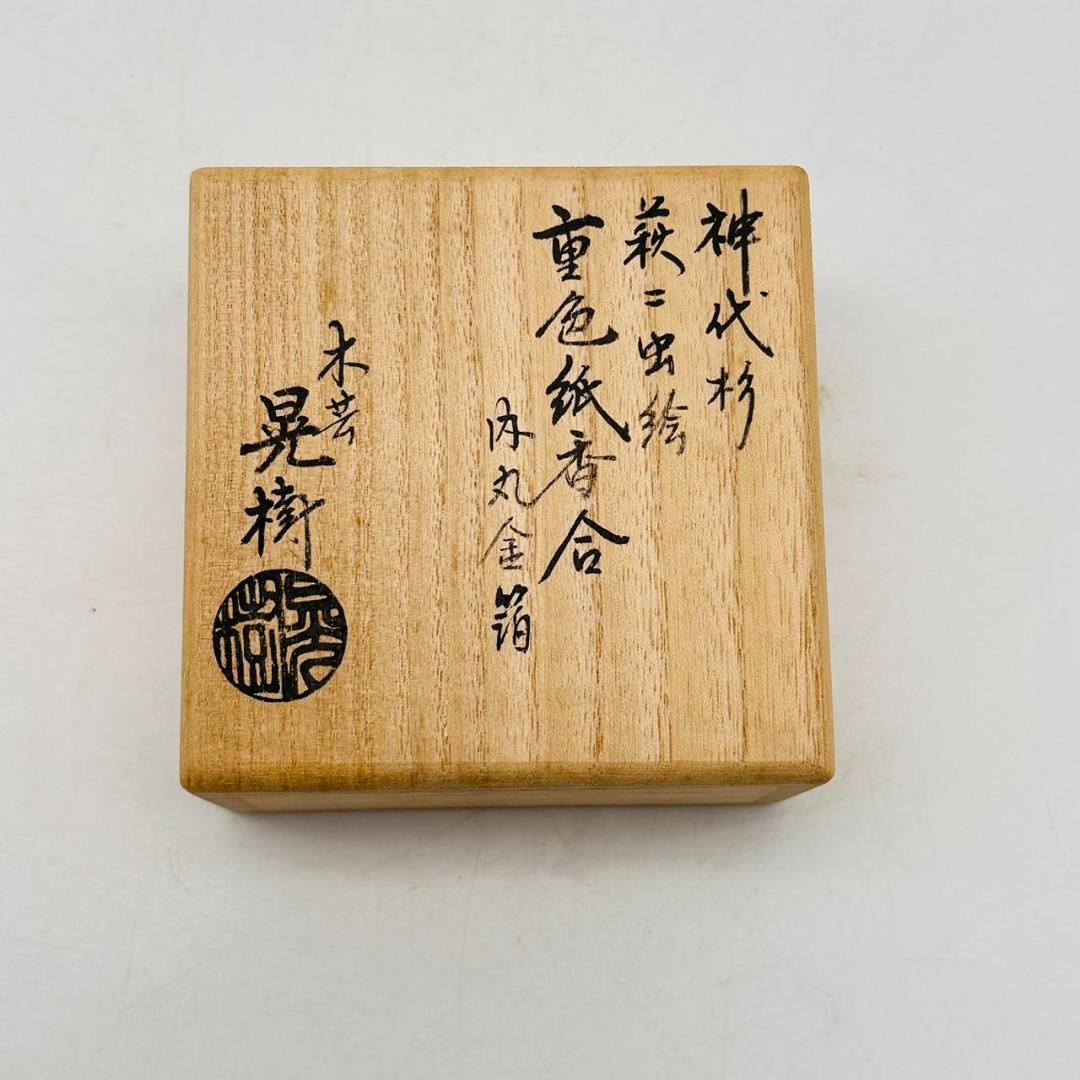 神代杉
萩ニ虫絵
重色紙香合
内丸金箔
木芸
晃樹
晃樹